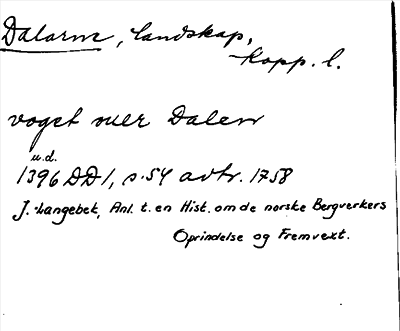 Dalarne, landskap,
Kopp. l.
voget over Dalen
u.d.
1396 DD1, s. 54 avtr. 1758
J. Langebek, Anl. t. en Hist. om de norske Bergverkers
Oprindelse og Fremvext.